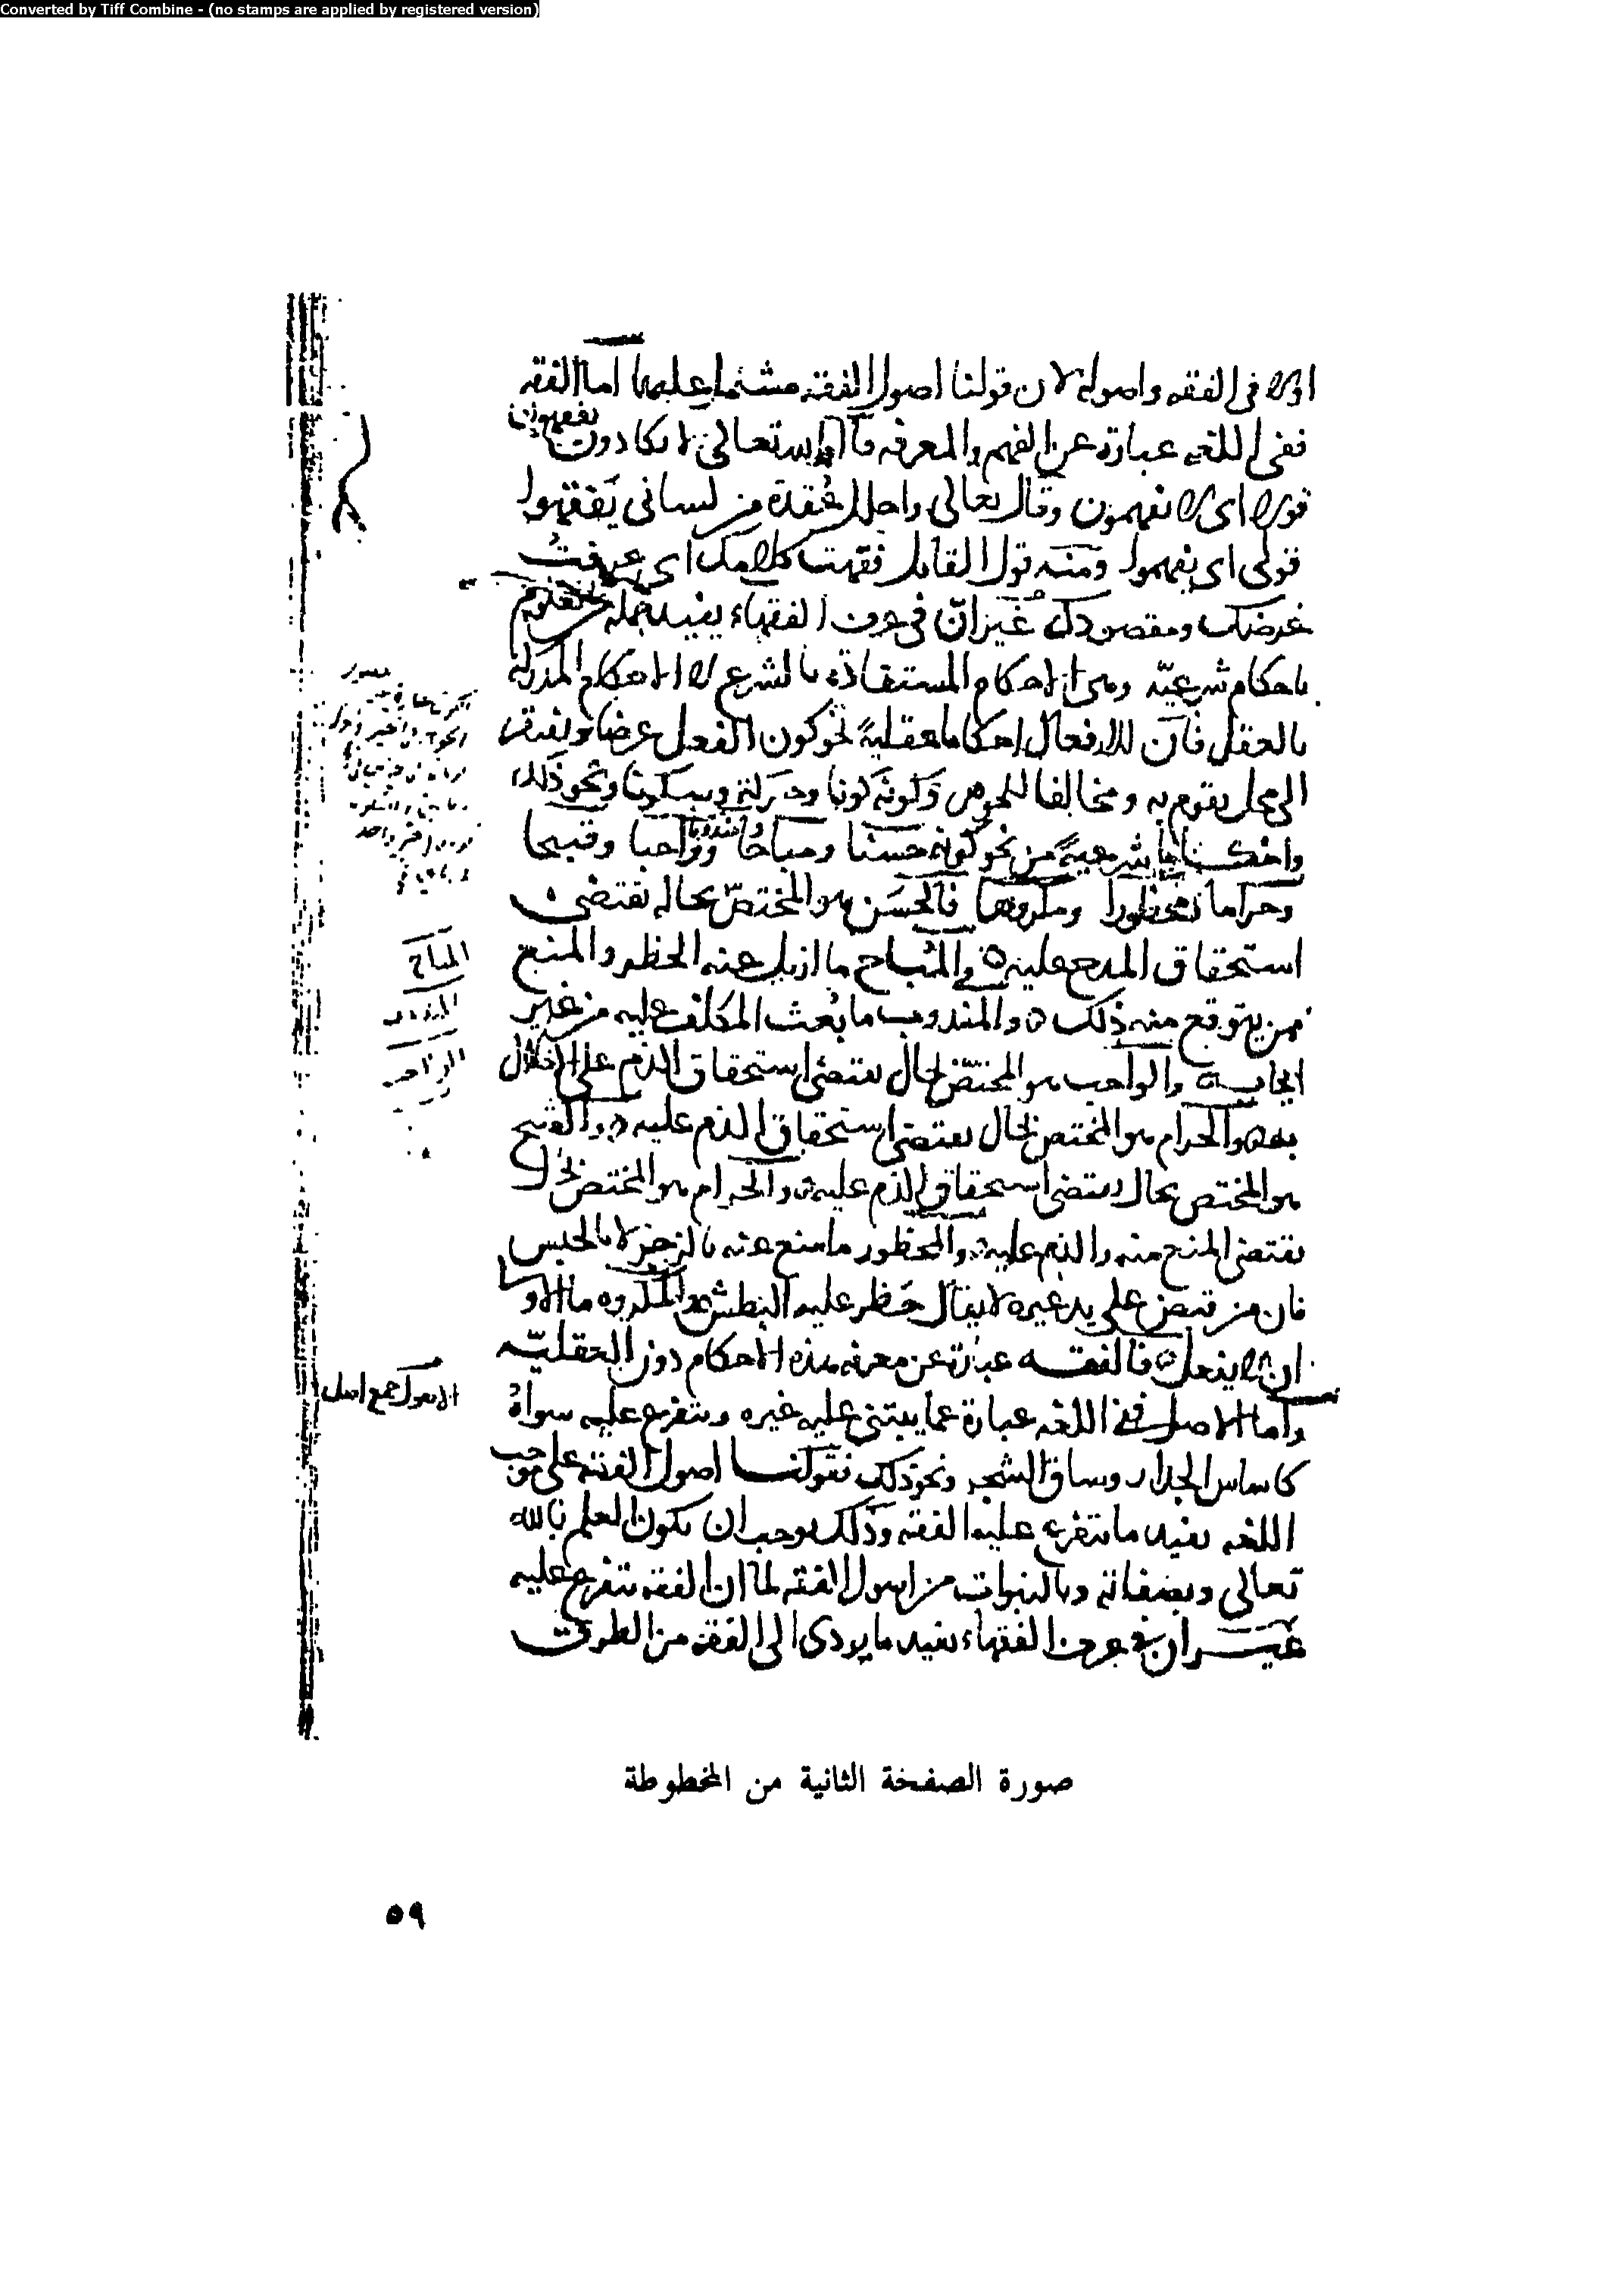 Converted by Tiff Combine - (no stamps are applied by registered version)
اولا فى الفقه واصوله لان قولنا اصول الفقه مشتمل عليهما اما الفقه
ففى اللغه عبارة عن الفهم والمعرفه قال الله تعالى لا يكادون يفقهون
قولا اى لا يفهمون وقال تعالى واحلل عقدة من لسانى يفقهوا
قولى اى يفهموا ومنه قول القايل فقهت كلامك اى عرفت
غرضك ومقصودك غير ان فى عرف الفقهاء يفيد جملة من العلوم
باحكام شرعيّه وهى الاحكام المستفادة بالشرع لا الاحكام المدركة
بالعقل فان للافعال احكاما عقليةً نحو كون الفعل عرضا ويفتقر
الى محل يقوم به ومخالفا للجوهر وكونه كونا وحركة وسكونا ونحو ذلك
واحكاما شرعيةً من نحو كونه حسنا ومباحا ومندوبا وواجبا وقبيحا
وحراما ومحظورا ومكروها فالحسن هو المختصّ بحاله تقتضى
استحقاق المدح عليه ه والمباح ما ازيل عنه الحظر والمنع
ممن يتوقع منه ذلك ه والمندوب ما بعث المكلف عليه من غير
ايجاب ه والواجب هو المختص بحال يقتضى استحقاق الذم على الاخلال
به ه والحرام هو المختص بحال يقتضى استحقاق الذم عليه ه والقبيح
هو المختص بحال يقتضى استحقاق الذم عليه ه والحرام هو المختص بحال
يقتضى المنع منه والذم عليه ه والمحظور ما منع عنه بالزجر لا بالحبس
فان من قبض على يد غيره لا يقال حظر عليه البطش ه والمكروه ما الاولى
ان لا يفعل ه فالفقه عبارة عن معرفه هذه الاحكام دون العقليّه
واما الاصل ففى اللغه عبارة عما يبتنى عليه غيره ويتفرع عليه سواه
الاصول جمع اصل
كاساس الجدار وساق الشجر ونحو ذلك فقولنا اصول الفقه على موجب
اللغه يفيد ما يتفرع عليه الفقه وذلك يوجب ان يكون العلم بالله
تعالى وبصفاته وبالنبوات من اصول الفقه لما ان الفقه يتفرع عليه
غير ان فى عرف الفقهاء يفيد ما يودى الى الفقه من الطرق
المباح
المندوب
الواجب
صورة الصفحة الثانية من المخطوطة
٥٩